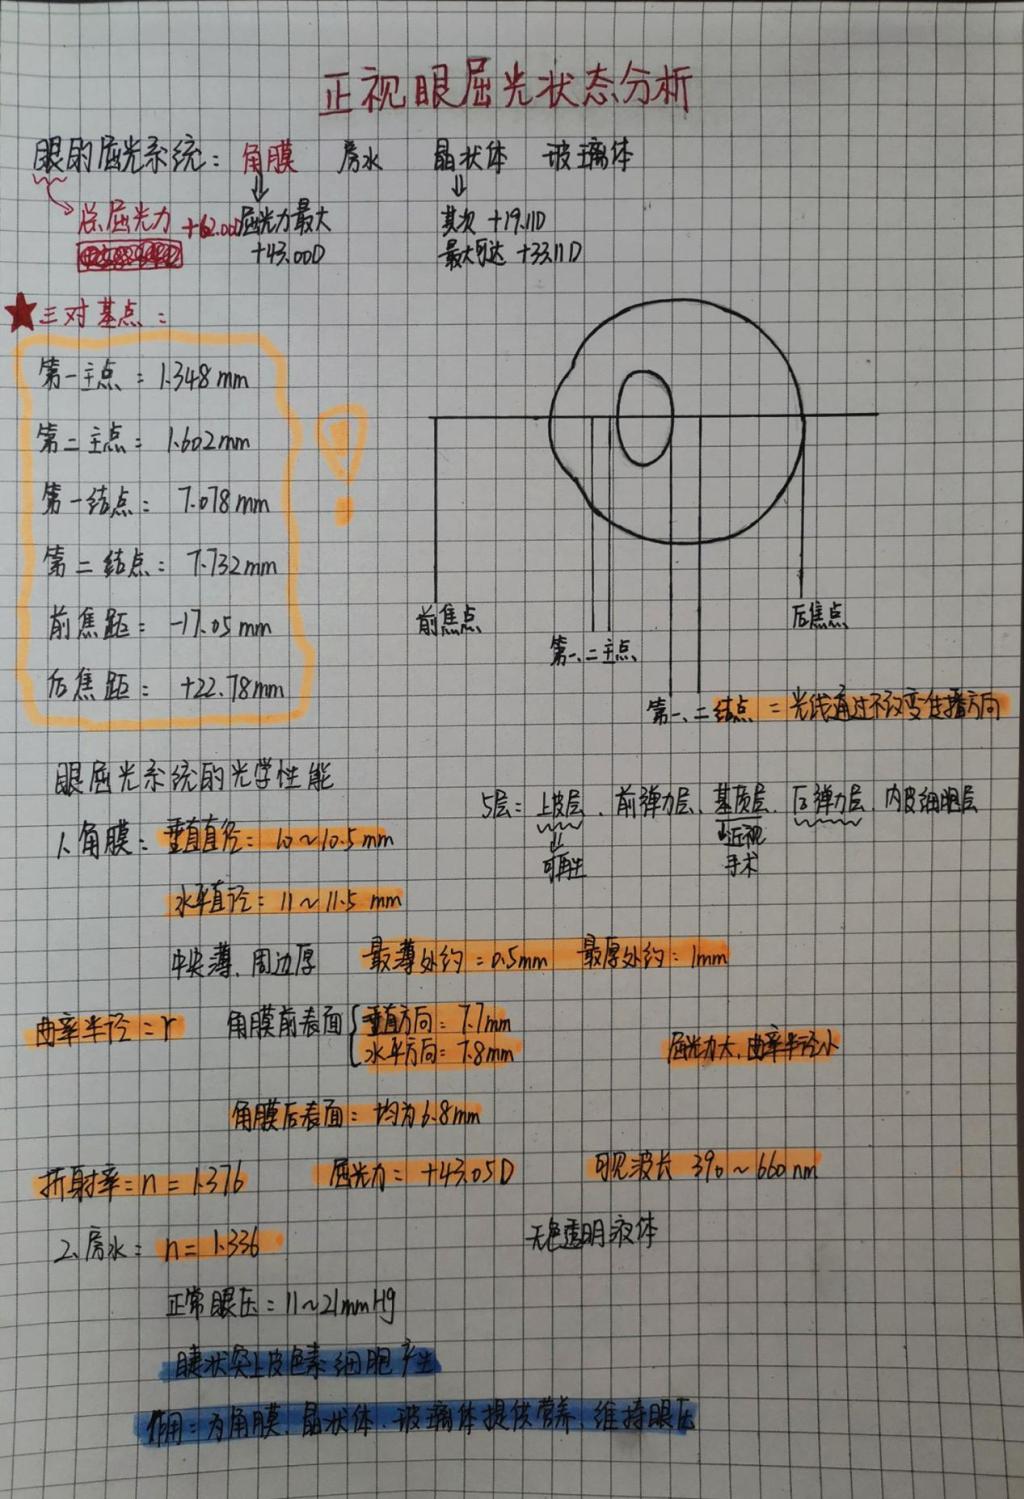 正视眼屈光状态分析
眼的屈光系统: 角膜 房水 晶状体 玻璃体
总屈光力 +62.00D 屈光力最大 其次 +19.11D
+43.00D 最大可达 +33.11D
★三对基点:
第一主点: 1.348mm
第二主点: 1.602mm
第一结点: 7.078mm
第二结点: 7.732mm
前焦距: -17.05mm
后焦距: +22.78mm
前焦点
第一、二主点
后焦点
第一、二结点 = 光线通过不改变传播方向
眼屈光系统的光学性能
5层: 上皮层、前弹力层、基质层、后弹力层、内皮细胞层
可再生
近视
手术
1、角膜: 垂直直径: 10~10.5mm
水平直径: 11~11.5mm
中央薄、周边厚 最薄处约=0.5mm 最厚处约: 1mm
曲率半径=r 角膜前表面 { 垂直方向: 7.7mm
水平方向: 7.8mm 屈光力大、曲率半径小
角膜后表面: 均为6.8mm
折射率=n=1.376 屈光力: +43.05D 可见波长 390~660nm
2、房水: n=1.336 无色透明液体
正常眼压: 11~21mmHg
睫状突上皮色素细胞产生
作用: 为角膜、晶状体、玻璃体提供营养、维持眼压